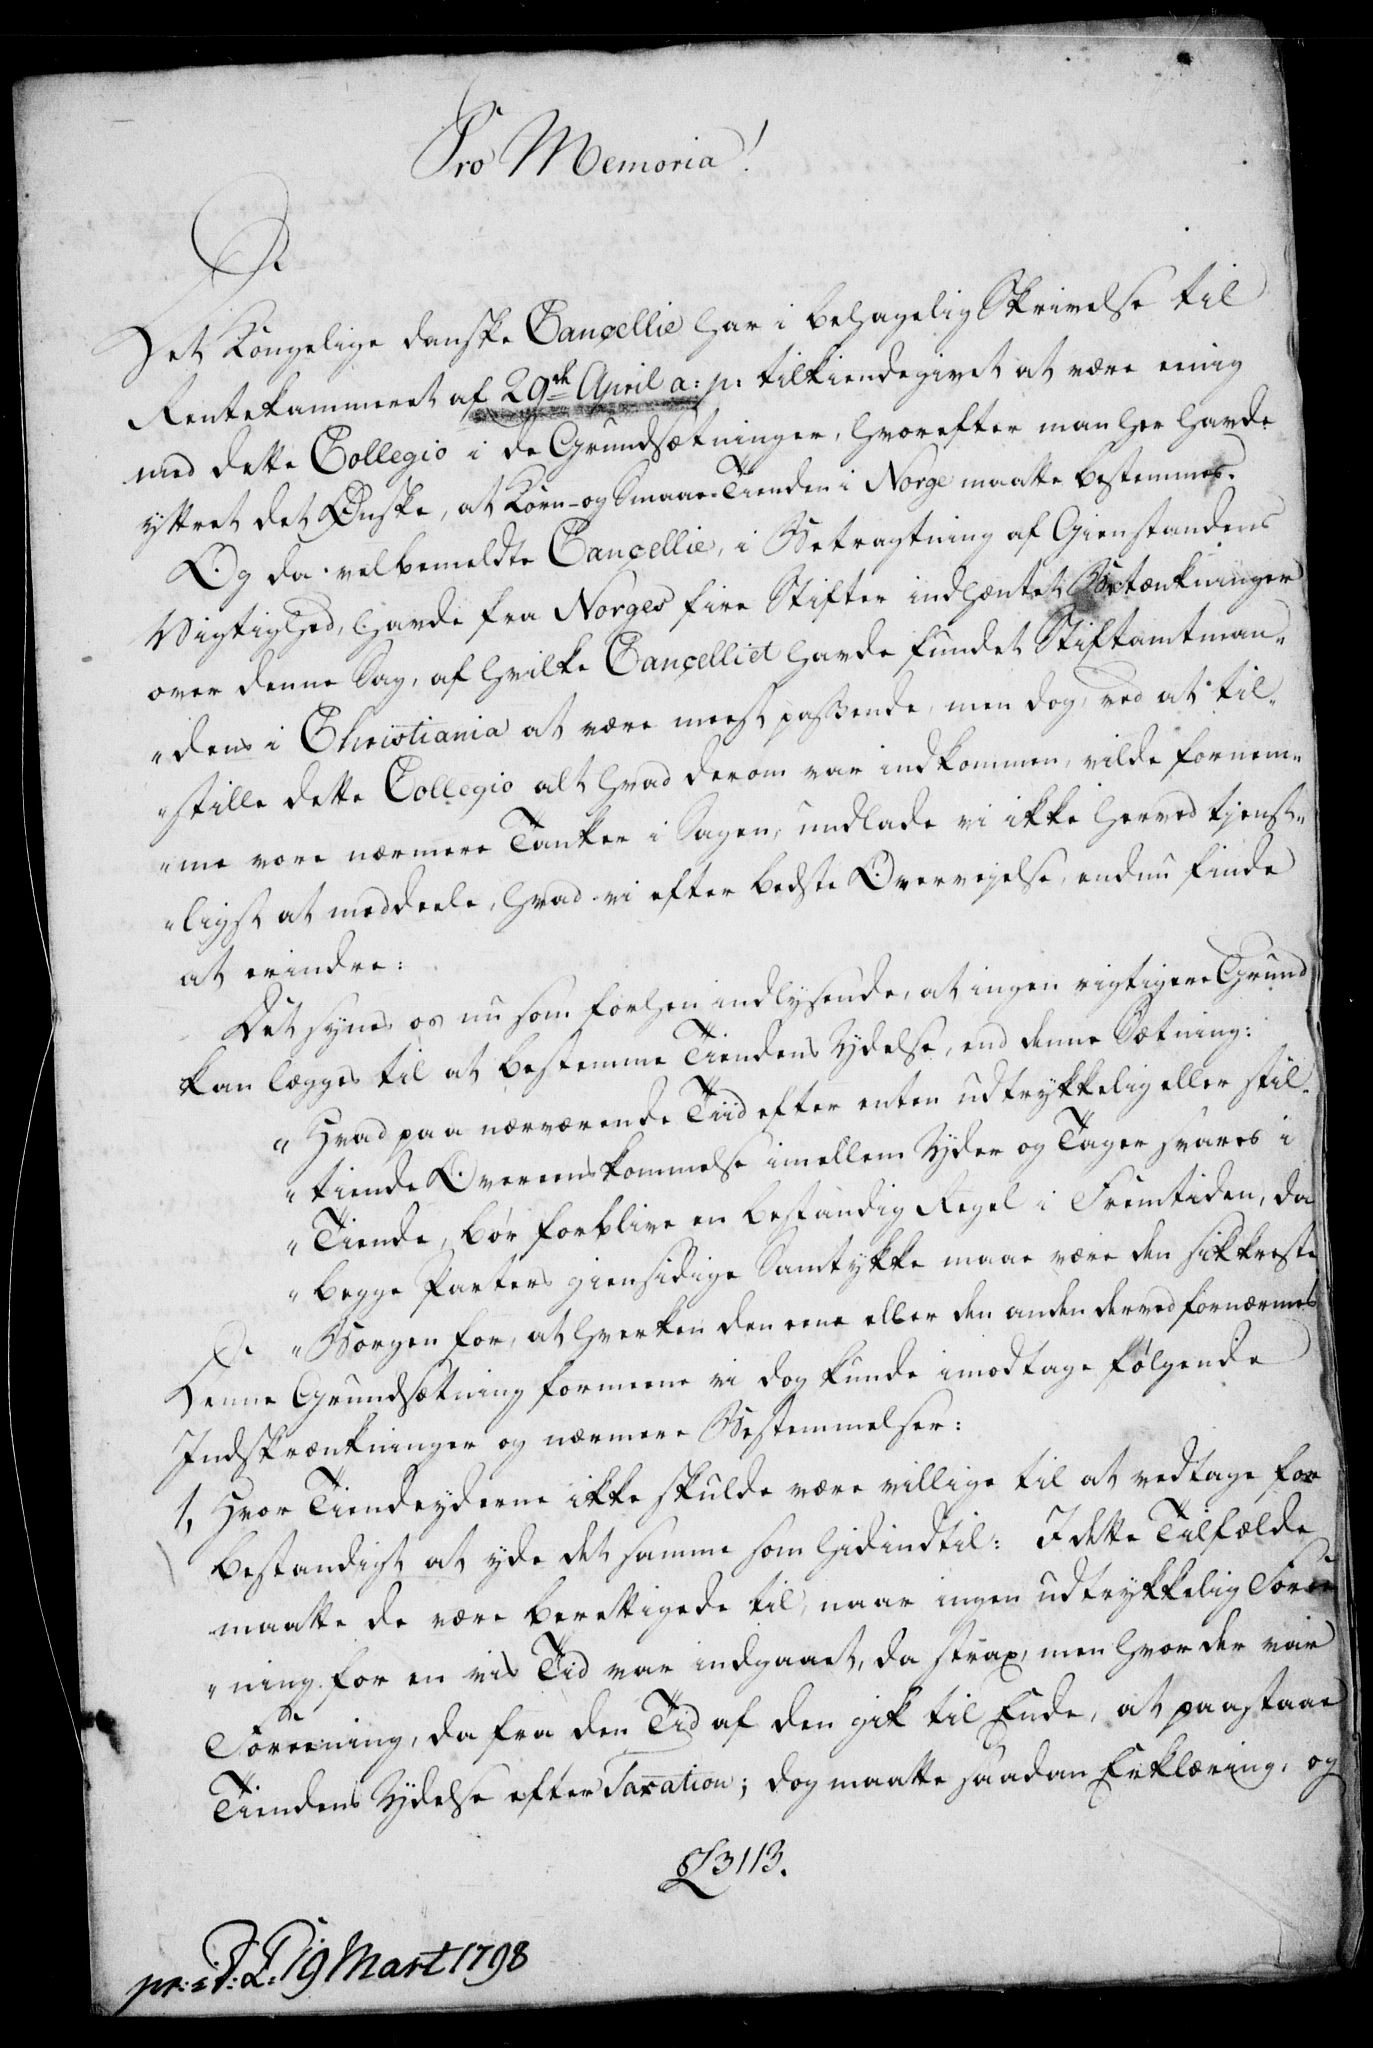 Pro Memoria!
Det Kongelige danske Cancellie har i behagelig Skrivelse til
Rentekammeret af 29de April a: p: tilkiendegivet at være enig
med dette Collegio i de Grundsætninger, hvorefter man her havde
yttret det Ønske, at Korn- og Smaae-Tienden i Norge maatte bestemmes.
Og da velbemeldte Cancellie, i Betragtning af Gienstandens
Vigtighed, havde fra Norges fire Stifter indhæntet Betænkninger
over denne Sag, af hvilke Cancelliet havde fundet Stiftamtman-
"dens i Christiania at være meest passende, men dog, ved at til-
"stille dette Collegio alt hvad derom var indkommen, vilde fornem-
"me vore nærmere Tanker i Sagen, undlade vi ikke herved tjenst-
"ligst at meddeele, hvad vi efter bedste Overvejelse, endnu finde
at erindre:
Det synes os nu som forhen indlysende, at ingen rigtigere Grund
kan lægges til at bestemme Tiendens Ydelse, end denne Sætning:
"Hvad paa nærværende Tiid efter enten udtrykkelig eller stil-
"tiende Overeenskommelse imellem Yder og Tager svares i
"Tiende, bør forblive en bestandig Regel i Fremtiden, da
"begge Parters giensidige Samtykke maae være den sikkreste
"Borgen for, at hverken den eene eller den anden derved fornærmes
Denne Grundsætning formeene vi dog kunde imodtage følgende
Indskrænkninger og nærmere Bestemmelser:
1, Hvor Tiendeyderne ikke skulde være villige til at vedtage for
bestandigt at yde det samme som hidindtil: I dette Tilfælde
maatte de være berettigede til, naar ingen udtrykkelig Foree
"ning for en vis Tid var indgaaet, da strax, men hvor der var
Foreening, da fra den Tid af den gik til Ende, at paastaae
Tiendens Ydelse efter Taxation; dog maatte saadan Erklæring, og
L3113.
19 Mart 1798